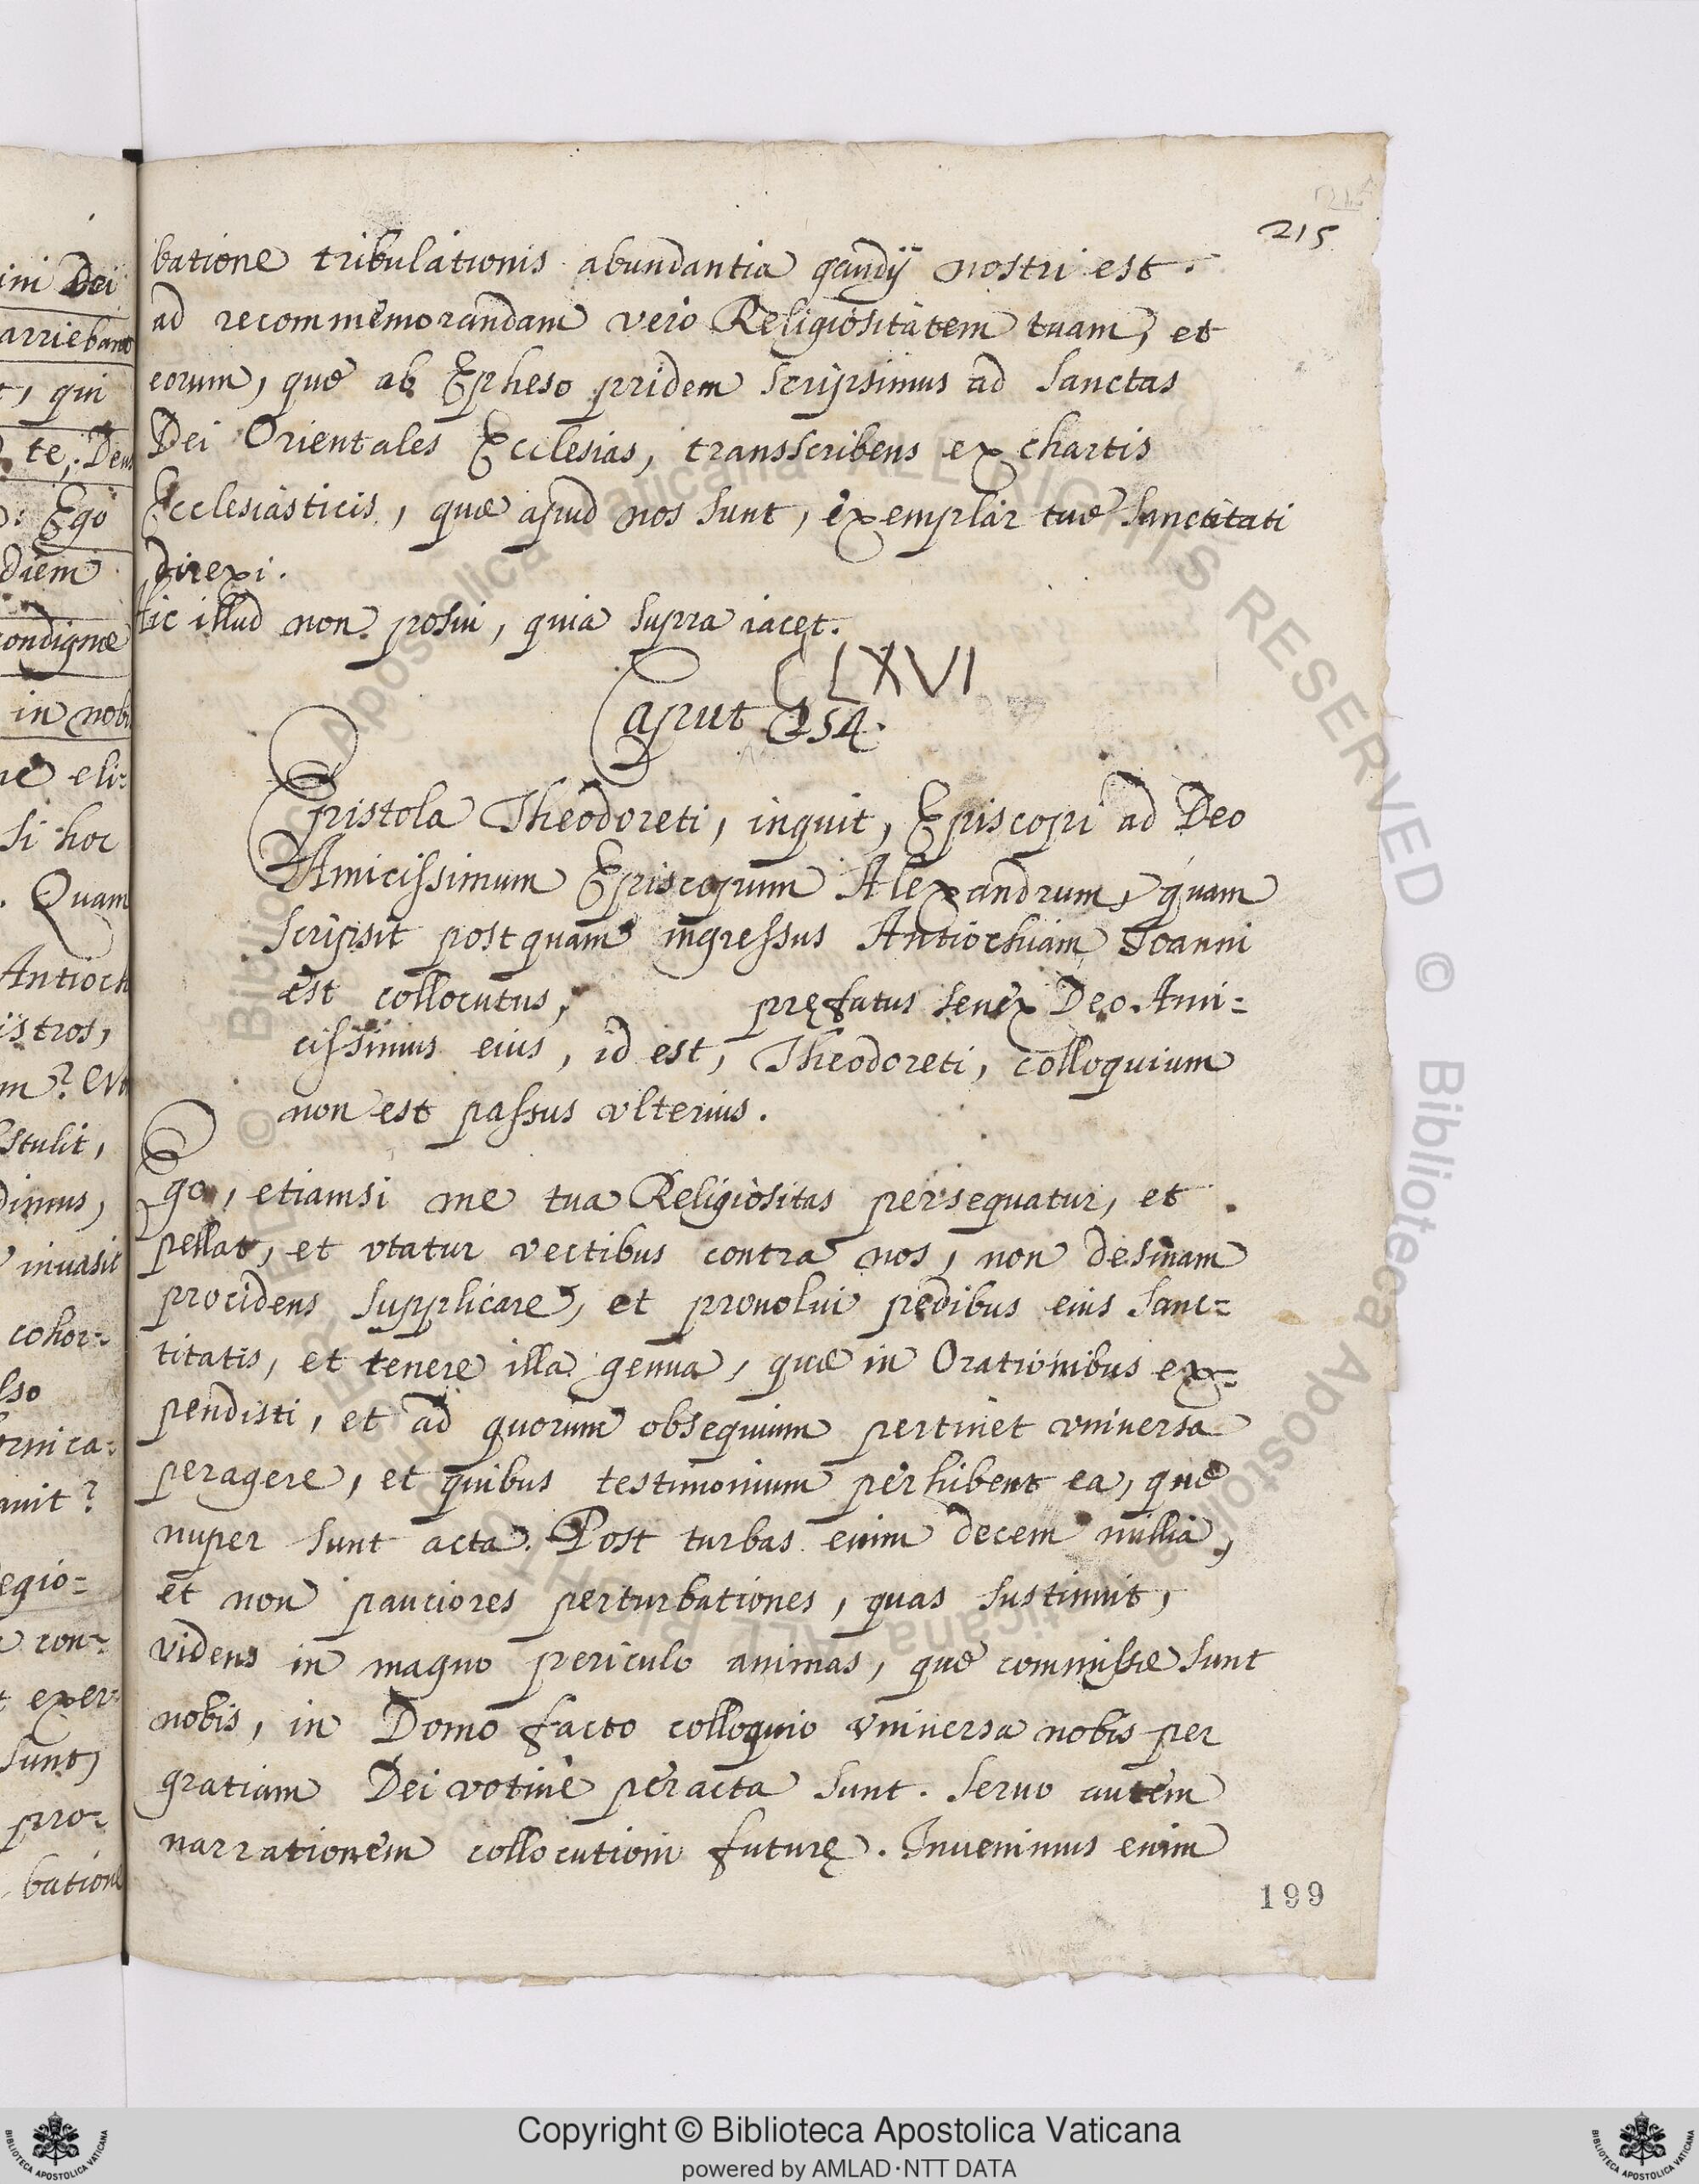 215
batione tribulationis abundantia gaudij nostri est.
ad recommemorandam vero Religiositatem tuam, et
eorum, que ab Epheso pridem scripsimus ad sanctas
Dei Orientales Ecclesias, transscribens ex chartis
Ecclesiasticis, quæ apud nos sunt, exemplar tue sanctitati
direxi.
Hic illud non posui, quia supra iacet.
CLXVI
Caput 254.
Epistola Theodoreti, inquit, Episcopi ad Deo
Amicissimum Episcopum Alexandrum, quam
scripsit postquam ingressus Antiochiam Ioanni
est collocutus, pręfatus senex Deo Ami=
cissimus eius, id est, Theodoreti, colloquium
non est passus vlterius.
Ego, etiamsi me tua Religiositas persequatur, et
pellat, et vtatur vectibus contra nos, non desinam
procidens supplicare, et prouolui pedibus eius sanc=
titatis, et tenere illa genua, quæ in Orationibus ex=
pendisti, et ad quorum obsequium pertinet vniuersa
peragere, et quibus testimonium perhibent ea, que
nuper sunt acta. Post turbas enim decem millia,
et non pauciores perturbationes, quas sustinuit,
videns in magno periculo animas, que commissæ sunt
nobis, in Domo facto colloquio vniuersa nobis per
gratiam Dei votiue peracta sunt. seruo autem
narrationem collocutioni futurę. Inuenimus enim
199
ini Dei
arrieban
, qui
te, Deus
Ego
diem
condigne
in nobi
eli=
si hoc
. Quam
Antioch
istros,
m?
stulit,
dimus,
inuasit
cohor=
lso
ornica=
auit?
egio=
con=
exer=
sunt,
pro=
batione
© Biblioteca Apostolica Vaticana ALL RIGHTS RESERVED
Copyright © Biblioteca Apostolica Vaticana
powered by AMLAD·NTT DATA
BIBLIOTECA APOSTOLICA VATICANA
BIBLIOTECA APOSTOLICA VATICANA